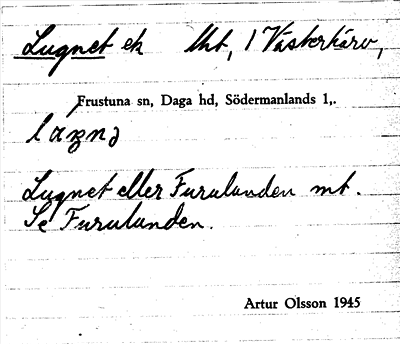 Lugnet ek mt, 1 Västerkärv,
Frustuna sn, Daga hd, Södermanlands l,.
Lugnet eller Furulunden mt.
Se Furulunden.
Artur Olsson 1945